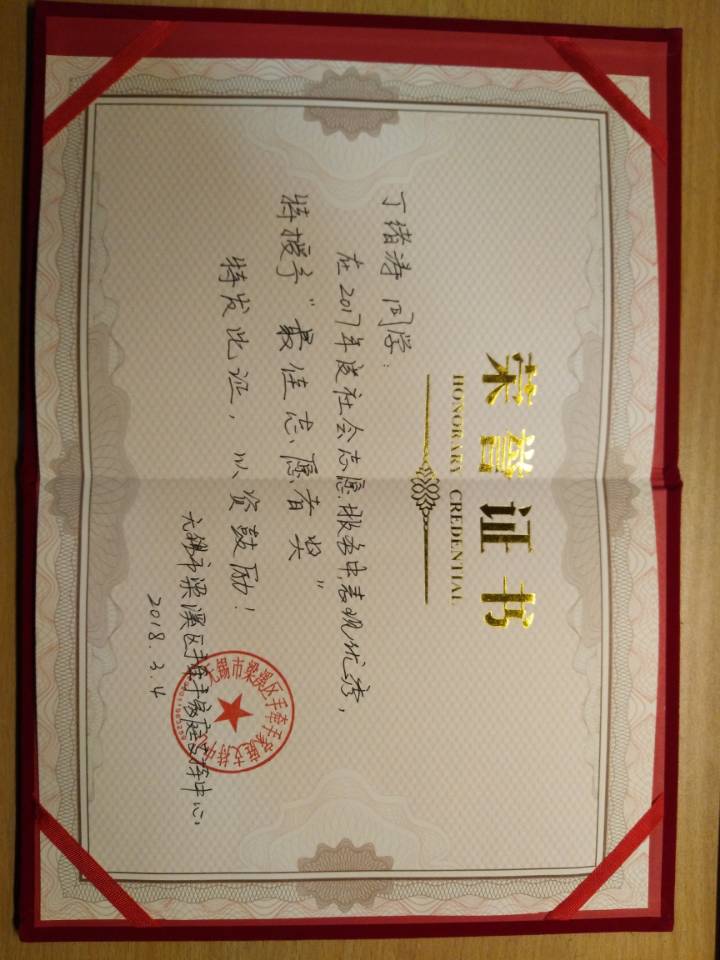 荣誉证书
HONORARY CREDENTIAL
丁绪涛 同学:
在2017年度社会志愿服务中,表现优秀,
特授予“最佳志愿者奖”
特发此证,以资鼓励!
无锡市梁溪区手牵手家庭支持中心
2018.3.4
无锡市梁溪区手牵手家庭支持中心